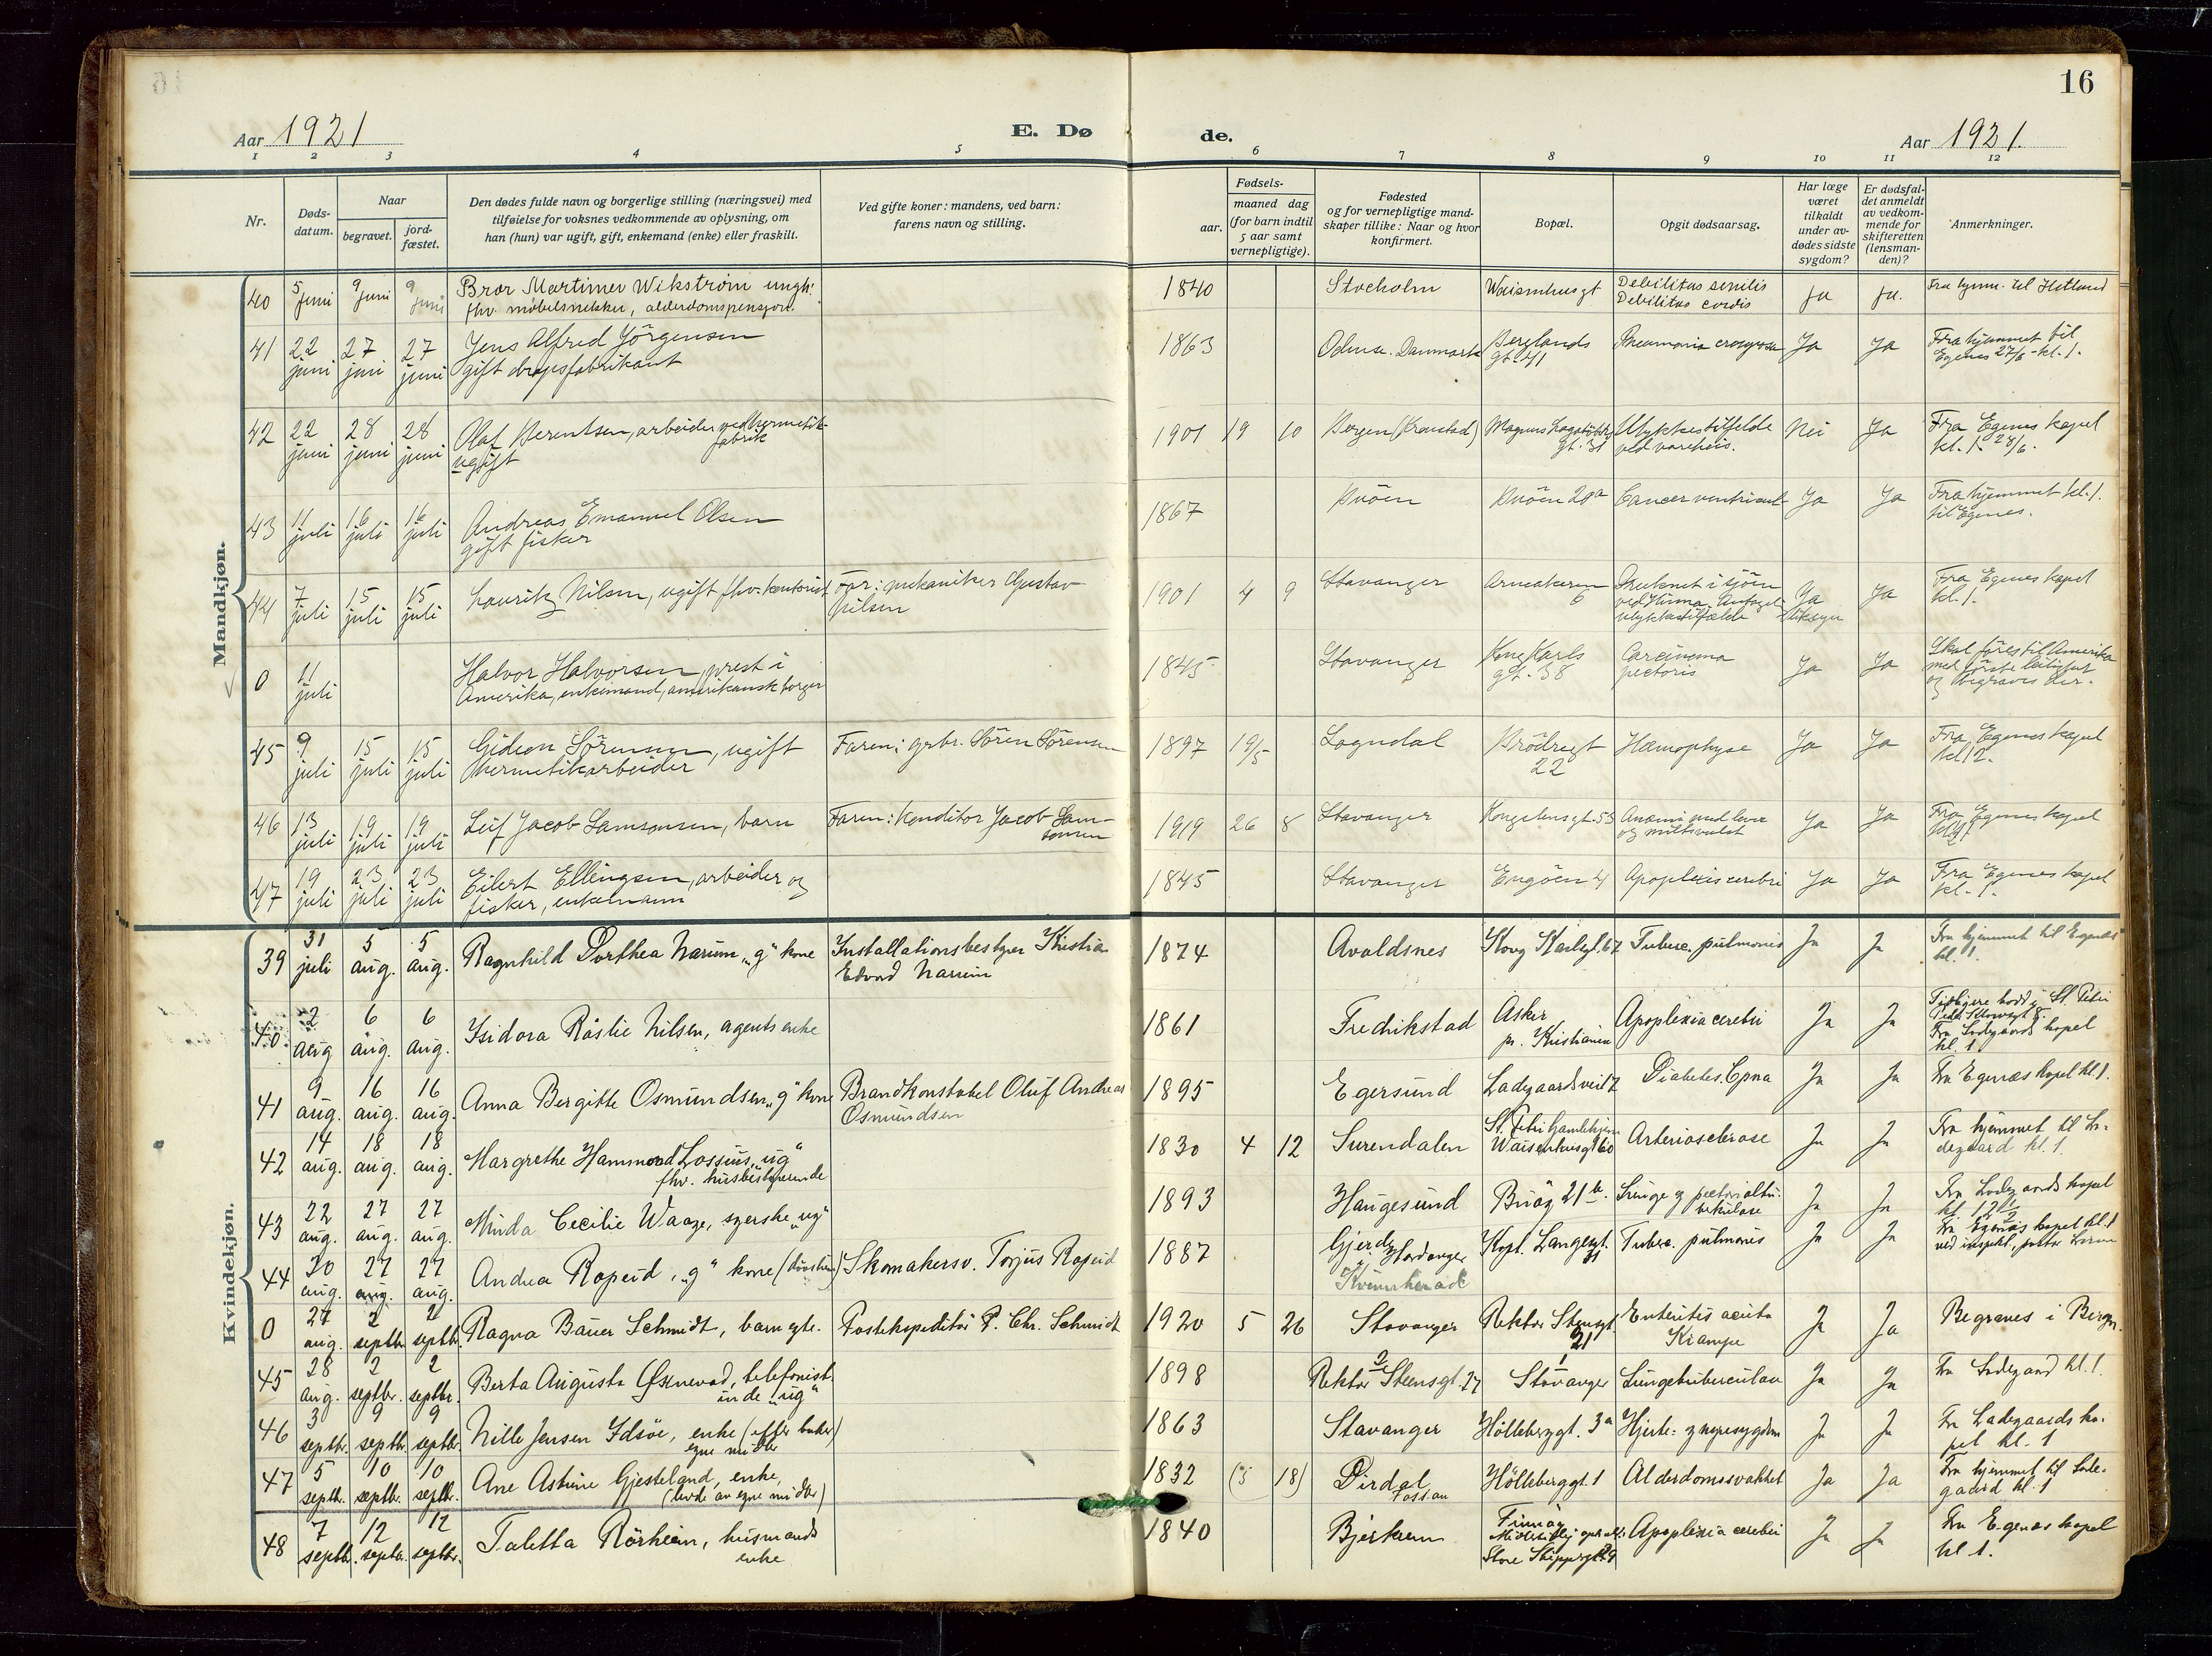 16
Aar 1921
E. Dø
de.
Aar 1921.
1 2 3 4 5 6 7 8 9 10 11 12
Nr.
Døds-
datum.
Naar
begravet.
jord-
fæstet.
Den dødes fulde navn og borgerlige stilling (næringsvei) med
tilføielse for voksnes vedkommende av oplysning, om
han (hun) var ugift, gift, enkemand (enke) eller fraskilt.
Ved gifte koner: mandens, ved barn:
farens navn og stilling.
Fødsels-
aar.
maaned dag
(for barn indtil
5 aar samt
vernepligtige).
Fødested
og for vernepligtige mand-
skaper tillike: Naar og hvor
konfirmert.
Bopæl.
Opgit dødsaarsag.
Har læge
været
tilkaldt
under av-
dødes sidste
sygdom?
Er dødsfal-
det anmeldt
av vedkom-
mende for
skifteretten
(lensman-
den)?
Anmerkninger.
Mandkjøn.
40 5 juni 9 juni 9 juni Bror Martimer Wikström ungk. 1840 Stockholm Waisenhusgt Debilitas senilis ja ja. Fra hjem. til Hetland
fhv. møbelsnekker, alderdomspensjon. Debilitas cordis
41 22 juni 27 juni 27 juni Jens Alfred Jörgensen 1863 Odense. Danmark Berglands Pneumonia crouposa Ja Ja Fra hjemmet til
gift dropsfabrikant gt. 41 Egenes 27/6 - kl. 1.
42 22 juni 28 juni 28 juni Olaf Berentsen, arbeider ved hermetik- 1901 19 10 Bergen Magnus Lagabötersgt. 31 Ulykkestilfelde Nei Ja Fra Egenes kapel
fabrik ugift ved kl. 1. 28/6.
43 11 juli 16 juli 16 juli Andreas Emanuel Olsen 1867 Buöen Buöen 20a Cancer ventricul Ja Ja Fra hjemmet kl. 1.
gift fisker til Egenes.
44 7 juli 15 juli 15 juli Lauritz Nilsen, ugift fhv. kontorist Far: mekaniker Gustav 1901 4 9 Stavanger 6 Druknet i sjöen Ja Ja Fra Egenes kapel
Nilsen ved Hinna. Antagel. ulykkestilfælde Liksyn kl. 1.
0 11 juli Halvor Halvorsen, prest i 1845 Stavanger Kong Karls Carcinoma Ja Ja Skal föres til Amerika
Amerika, enkemand, amerikansk borger gt. 38 pectoris med förste leilighet
og begraves der.
45 9 juli 15 juli 15 juli Gideon Sörensen, ugift Faren: grbr. Sören Sörensen 1897 19/5 Sogndal Brödregt Hæmophyse Ja Ja Fra Egenes kapel
hermetikarbeider 22 kl 12.
46 13 juli 19 juli 19 juli Leif Jacob Samsonsen, barn Faren: konditor Jacob Sam- 1919 26 8 Stavanger Kongstensgt. 53 Anæmi med lever Ja Ja Fra Egenes kapel
sonsen og miltsvulst
47 19 juli 23 juli 23 juli Eilert Ellingsen, arbeider og 1845 Stavanger Engöen 4 Apoplexis cerebri Ja Ja Fra Egenes kapel
fisker, enkemann kl. 1.
Kvindekjøn.
39 31 juli 5 aug. 5 aug. Ragnhild Dorthea Narum „g“ kone Installationsbestyrer Kristia 1874 Avaldsnes Kong Karlsgt. 67 Tuberc. pulmonis Ja Ja Fra hjemmet til Egenæs
Edvard Narum kl. 1.
40 2 aug 6 aug. 6 aug. Isidora Råslie Nilsen, agents enke 1861 Fredrikstad Asker Apoplexia cerebri Ja Ja Tidligere bodd i St. Petri
pr. Kristiania Fra Ladegaards kapel
kl. 1
41 9 aug. 16 aug. 16 aug. Anna Bergitte Osmundsen „g“ kone Brandkonstabel Oluf Andreas 1895 Egersund Ladegaardsveil 7 Diabetes. Coma Ja Ja Fra Egenæs kapel kl. 1.
Osmundsen
42 14 aug. 18 aug. 18 aug. Margrethe Hammond Lossius „ug“ 1830 4 12 Surendalen St. Petri Gamlehjem Arteriosclerose Ja Ja Fra hjemmet til La-
fhv. husbestyrerinde Waisenhusgt 60 degaard kl. 1.
43 22 aug. 27 aug. 27 aug. Minda Cecilie Waage, syerske „ug“ 1893 Haugesund Buöy 21b. Lunge og Ja Ja Fra Ladegaards kapel
kl 12½
44 20 aug. 27 aug. 27 aug. Andrea Ropeid, „g“ kone Skomakersv. Torjus Ropeid 1887 Gjerde, Hardanger Kapt. Langesgt. 31 Tuberc. pulmonis Ja Ja Fra Egenæs kapel kl. 1
Kvinnherad ved
0 27 aug. 2 septbr. 2 septbr. Ragna Bauer Schmidt, barn egte. Postekspeditör P. Chr. Schmidt 1920 5 26 Stavanger Rektor Stensgt. Enteritis acuta Ja Ja Begraves i Bergen.
21 Krampe
45 28 aug. 2 septbr. 2 septbr. Berta Augusta Øksnevad, telefonist- 1898 Rektor Steensgt. 27 Stavanger Lungetuberculose Ja Ja Fra Ladegaard kl. 1.
inde „ug“
46 3 septbr. 9 septbr. 9 septbr. Nille Jensen Idsöe, enke (efter baker) 1863 Stavanger Hölleberggt. 3a Hjerte- og nyresygdom Ja Ja Fra Ladegaards ka-
egne midler pel kl. 1
47 5 septbr. 10 septbr. 10 septbr. Ane Astine Gjesteland, enke, 1832 (5 18) Dirdal Hölleberggt. 1 Alderdomssvakhet Ja Ja Fra hjemmet til Lade-
(levde av egne midler) Fossan gaard kl. 1
48 7 septbr. 12 septbr. 12 septbr. Taletta Rörheim, husmands 1840 Bjerkrem Finnöy Apoplexia cerebri Ja Ja Fra Egenæs kapel
enke Store Skippergt. 29 kl 1.